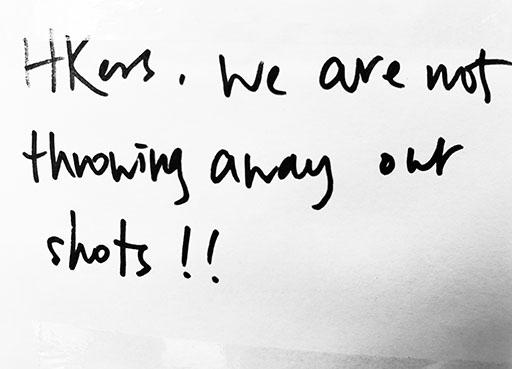 HKers. We are not
throwing away our
shots!!